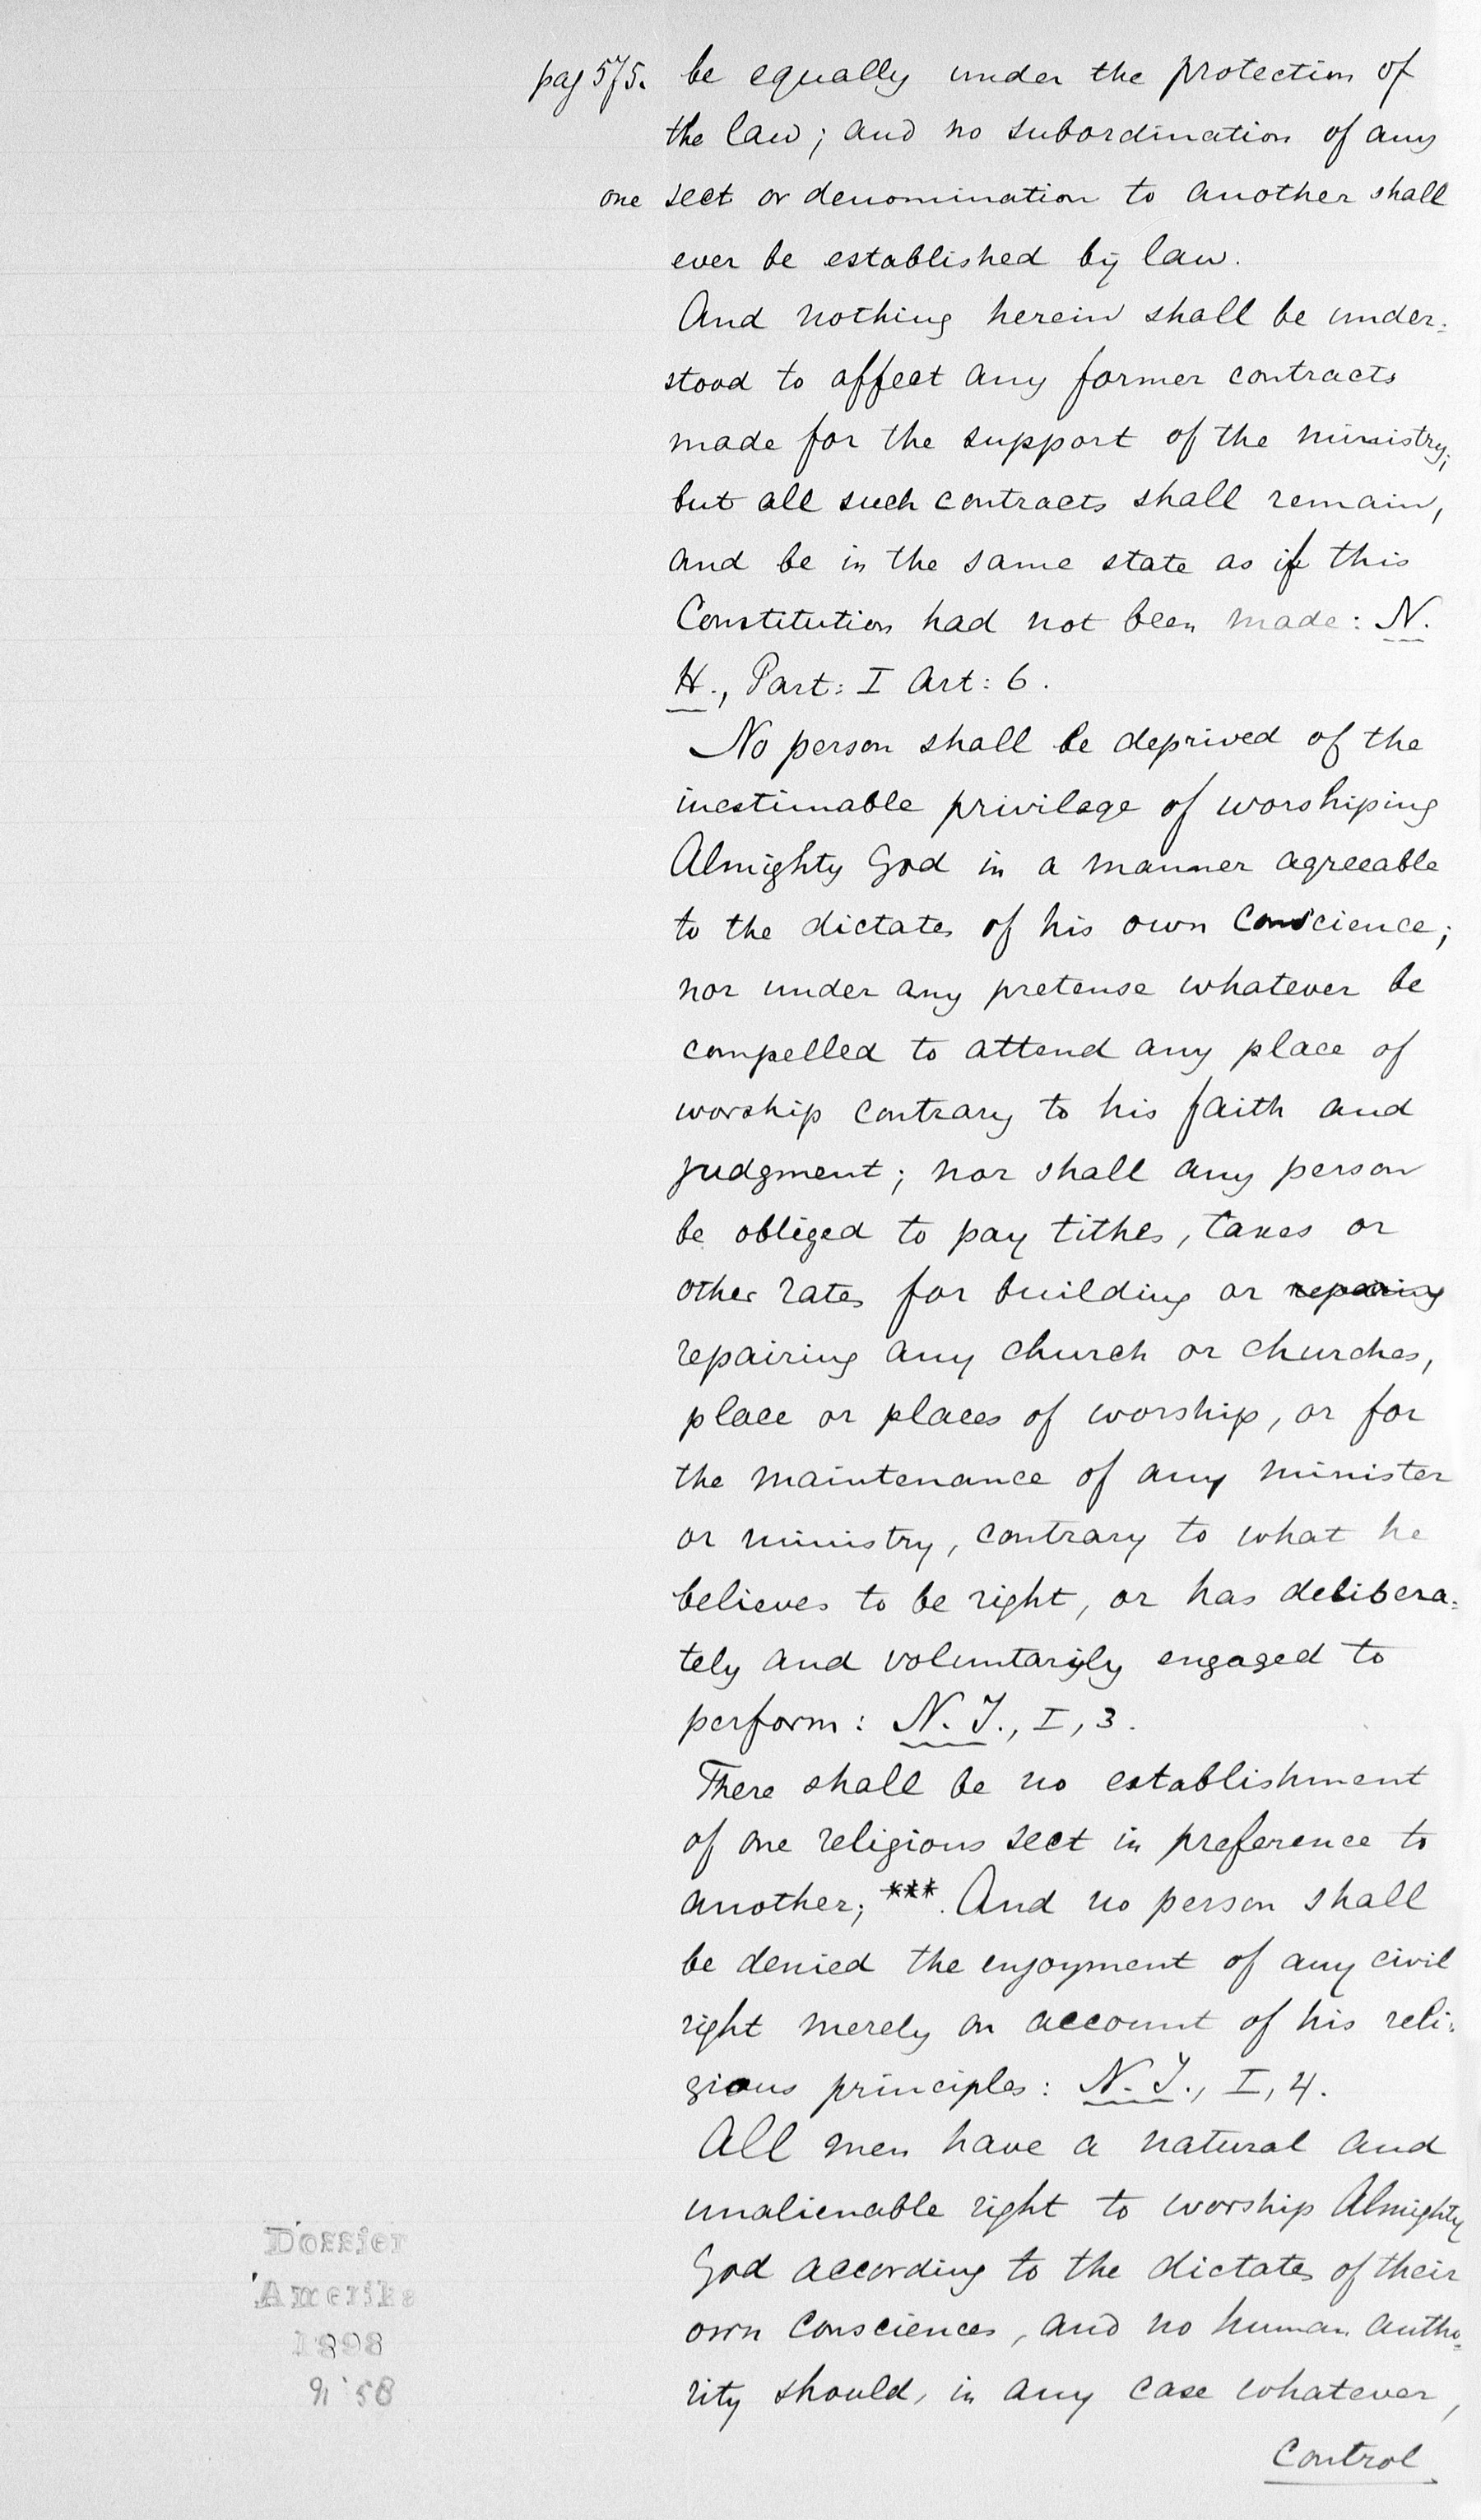 pag 575. be equally under the protection of
the law; and no subordination of any
one sect or denomination to another shall
ever be established by law.
And nothing herein shall be under=
stood to affect any former contracts
made for the support of the ministry;
but all such contracts shall remain,
and be in the same state as if this
Constitution had not been made: N.
H., Part: I Art: 6.
No person shall be deprived of the
inestimable privilege of worshiping
Almighty God in a manner agreeable
to the dictates of his own conscience;
nor under any pretense whatever be
compelled to attend any place of
worship contrary to his faith and
judgment; nor shall any person
be obliged to pay tithes, taxes or
other rates for building or repairing
repairing any church or churches,
place or places of worship, or for
the maintenance of any minister
or ministry, contrary to what he
believes to be right, or has delibera=
tely and voluntarily engaged to
perform: N. J., I, 3.
There shall be no establishment
of one religious sect in preference to
another; ***. And no person shall
be denied the enjoyment of any civil
right merely on account of his reli=
gious principles: N. J., I, 4.
All men have a natural and
unalienable right to worship Almighty
God according to the dictates of their
own consciences, and no human autho=
rity should, in any case whatever,
control
Dossier
Amerika
1898
9 '58